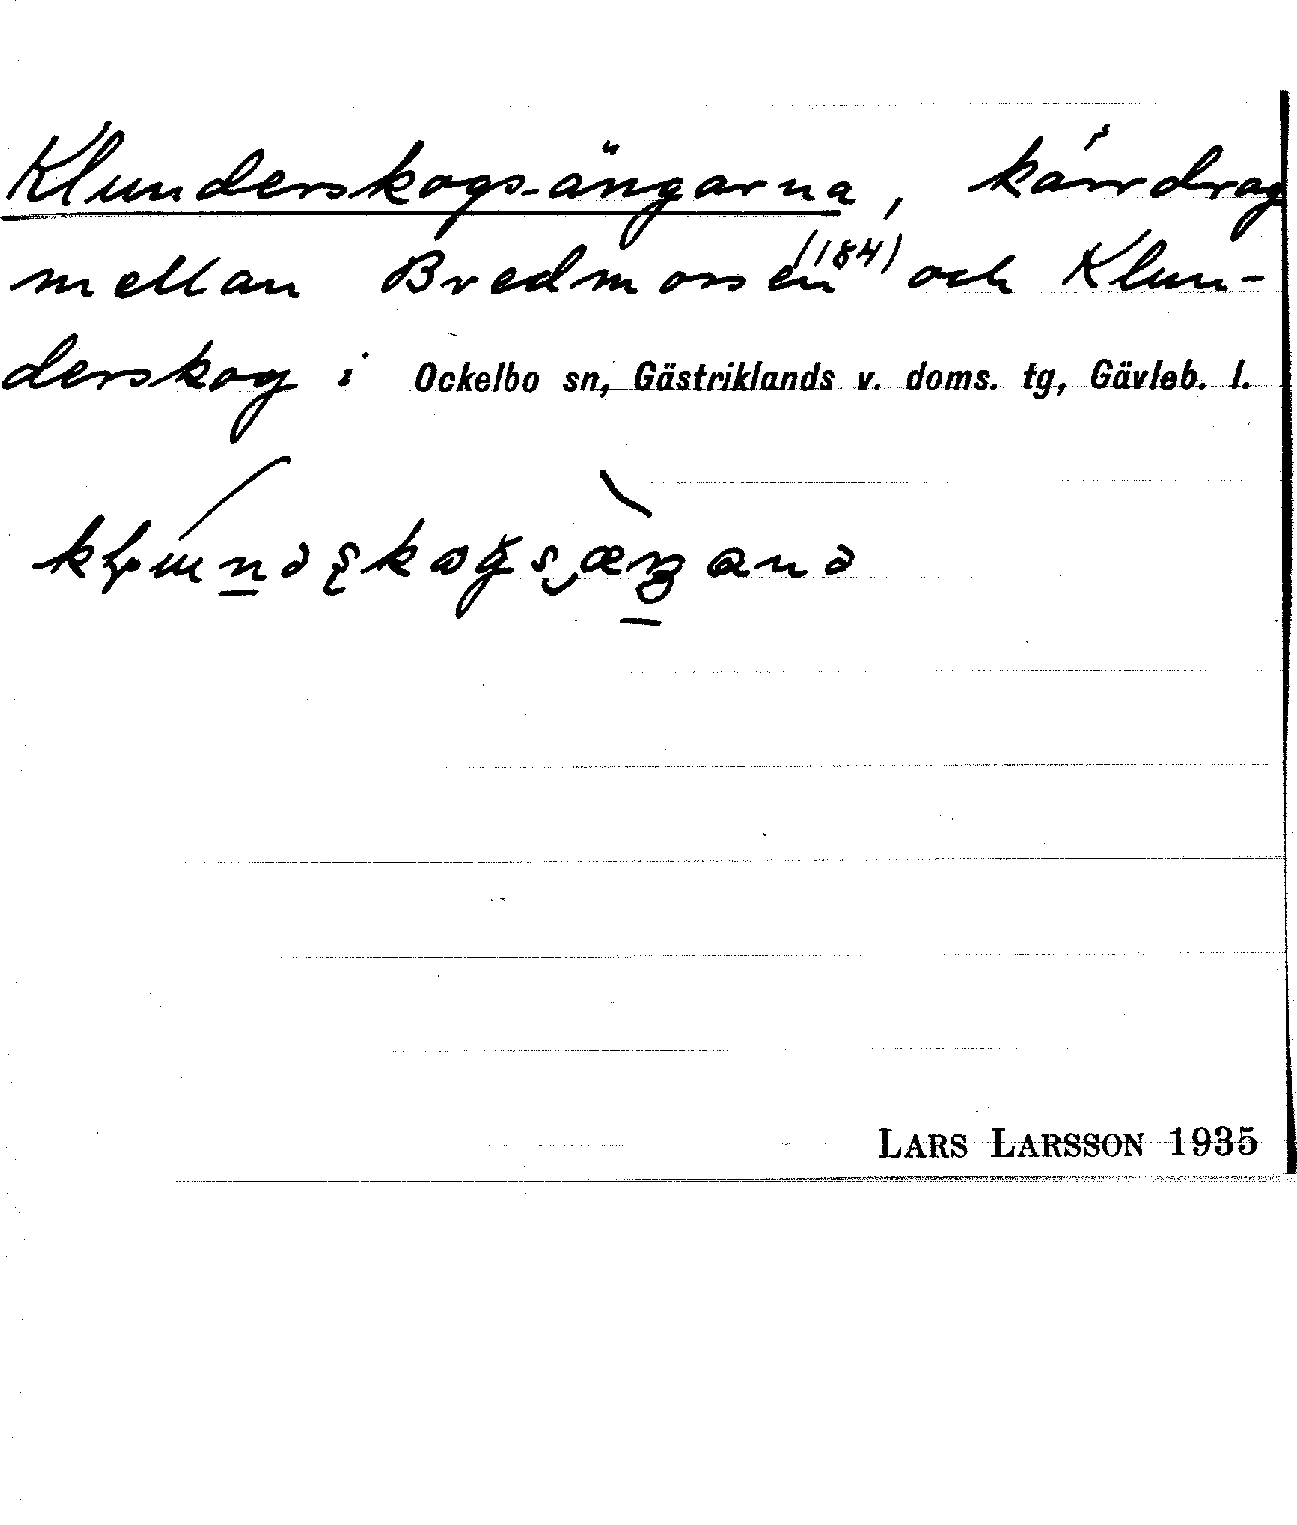 Klunderskogs-ängarna, kärrdrag
mellan Bredmossen (184) och Klun-
derskog i Ockelbo sn, Gästriklands v. doms. tg, Gävleb. l.
LARS LARSSON 1935